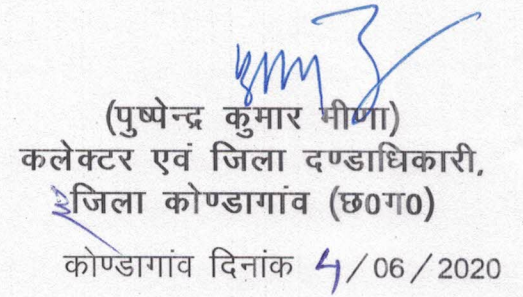 (पुष्पेन्द्र कुमार मीणा)
कलेक्टर एवं जिला दण्डाधिकारी,
जिला कोण्डागांव (छ0ग0)
कोण्डागांव दिनांक 4/06/2020